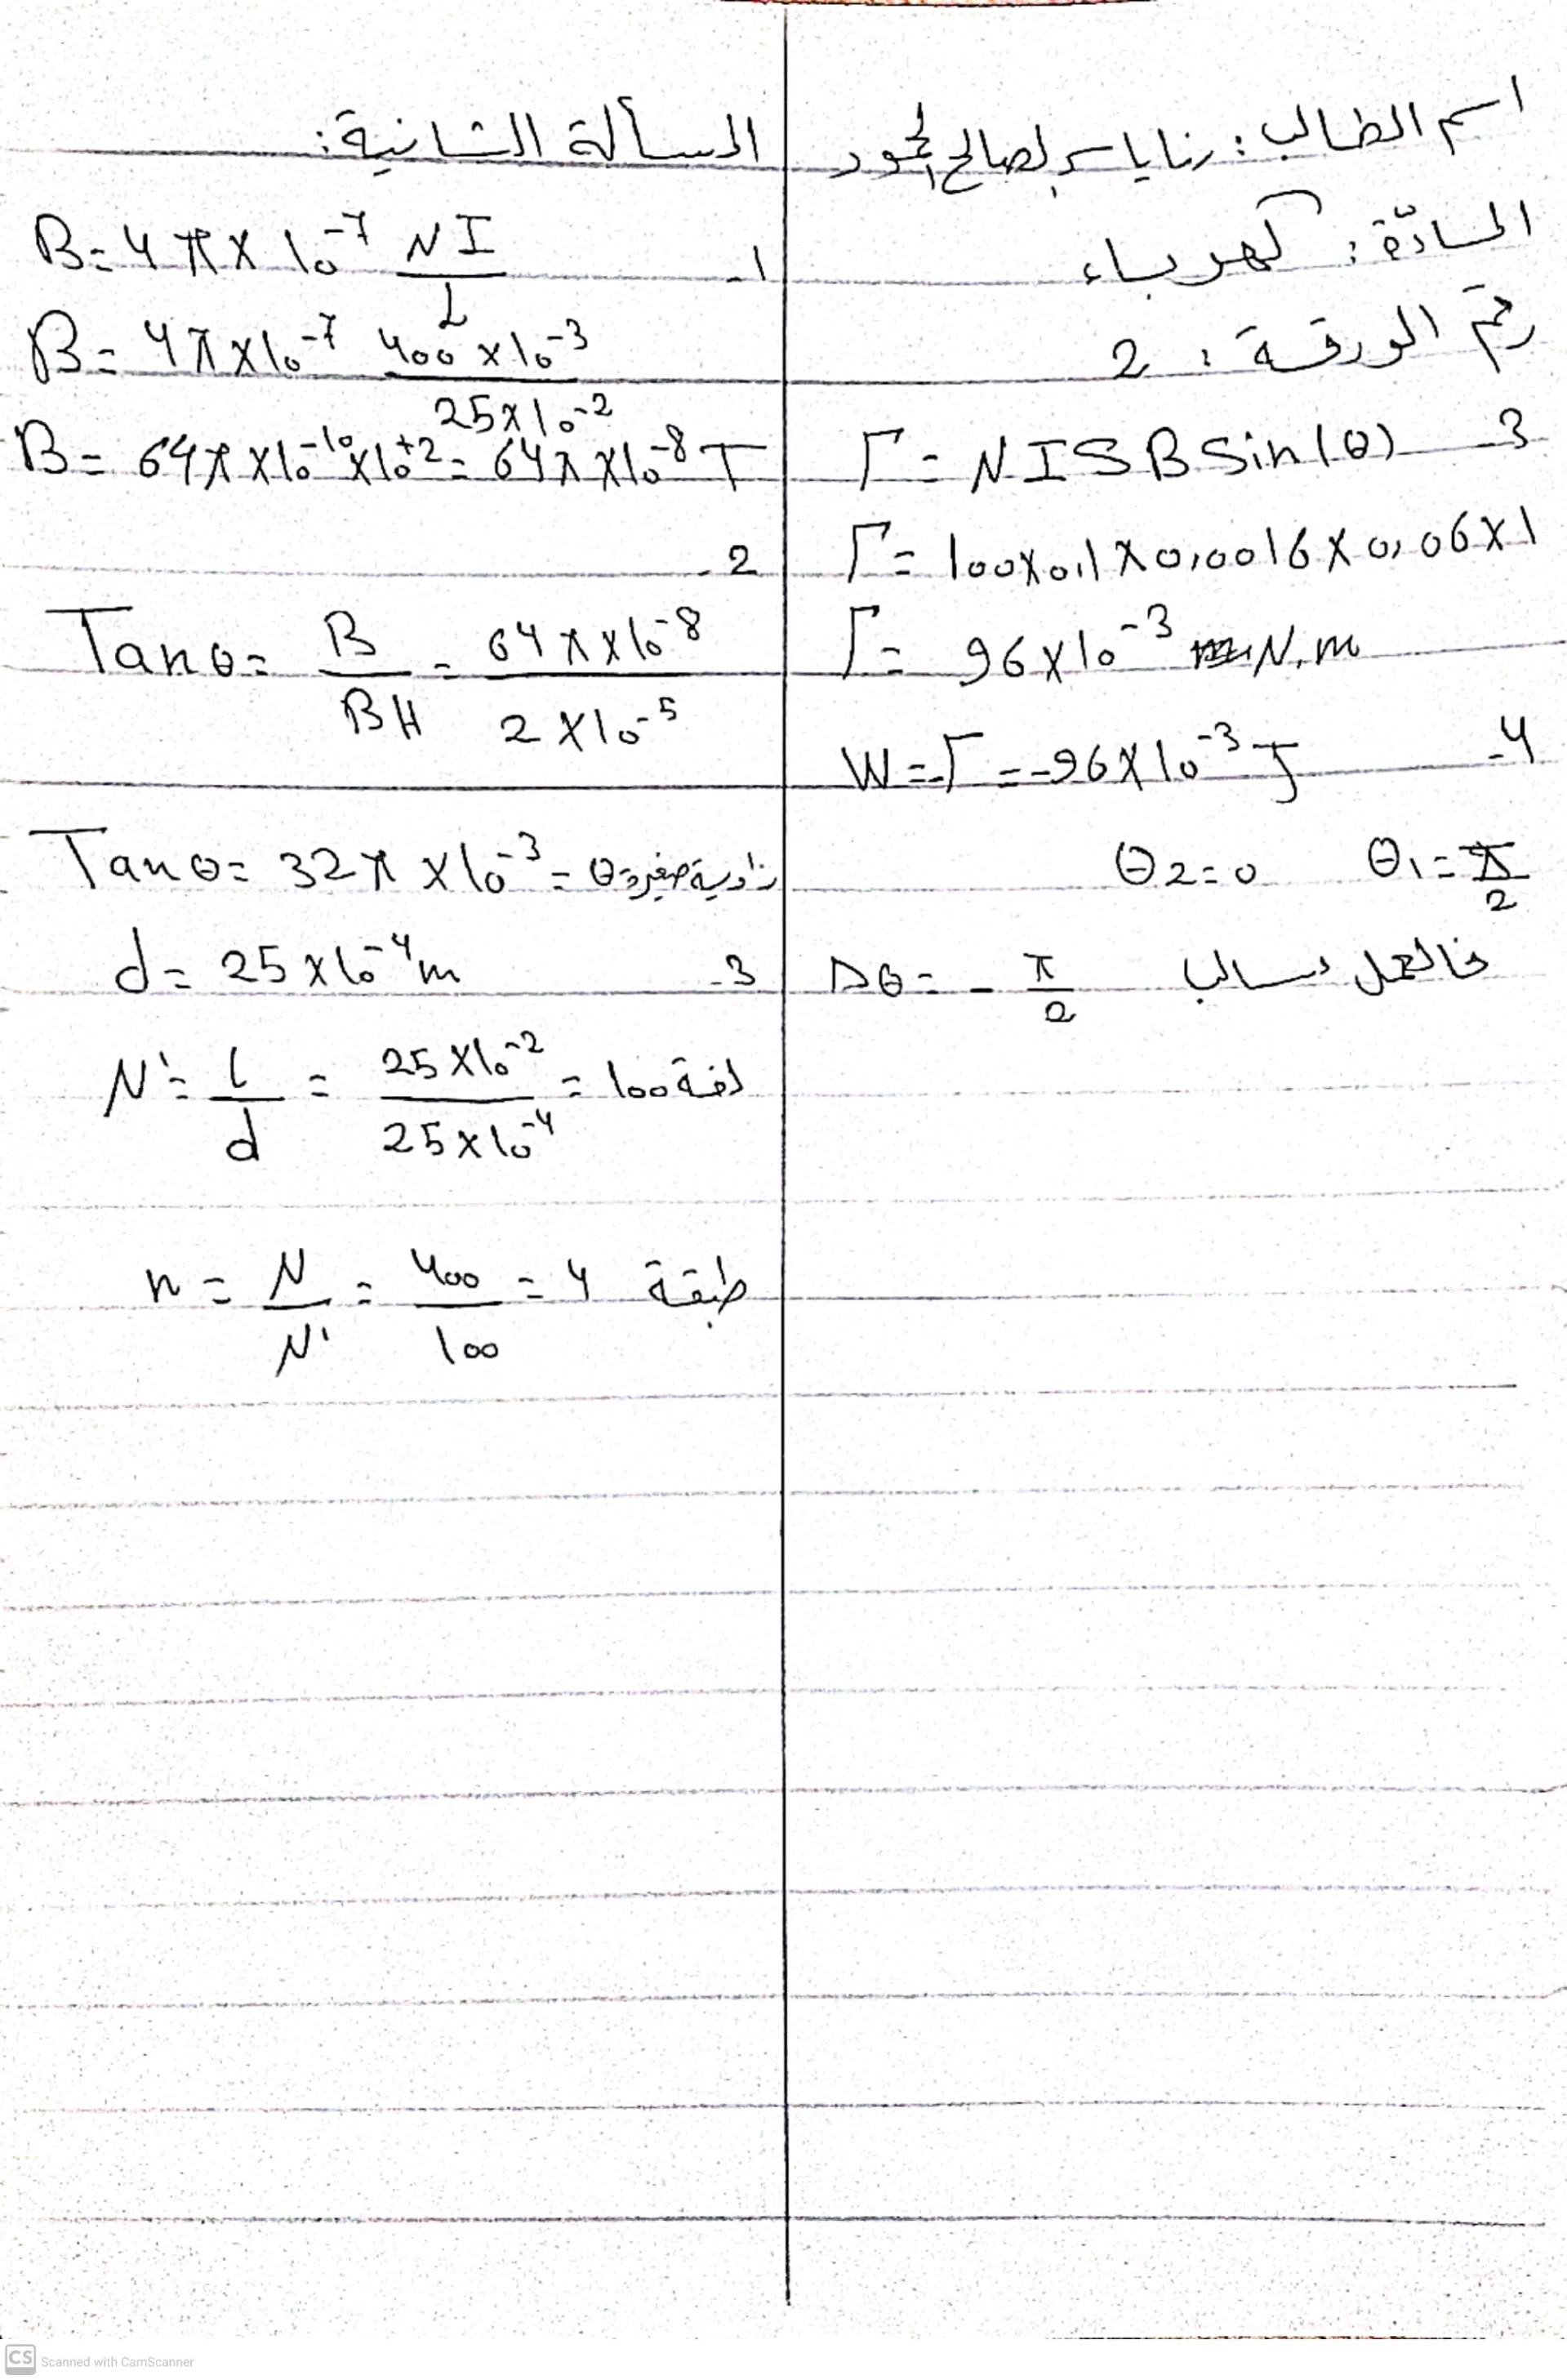 اسم الطالب: رنا ياسر لصالح لحمود
المادّة: كهرباء
رقم الورقة: 2
3- Γ = NISB Sin(θ)
Γ = 100x0,1 x 0,0016 x 0,06x1
Γ = 96x10⁻³ N.m
4- W = -Γ = -96x10⁻³ J
θ1 = π/2 θ2 = 0
Δθ = - π/2 فالعمل سالب
المسألة الثانية:
1- B = 4π x 10⁻⁷ NI/L
B = 4πx10⁻⁷ 400x10⁻³/25x10⁻²
B = 64π x10⁻¹⁰x10⁺² = 64π x10⁻⁸ T
2-
Tanθ = B/BH = 64π x10⁻⁸/2x10⁻⁵
Tanθ = 32π x10⁻³ = θ زاوية صغيرة
3- d = 25x10⁻⁴m
N' = l/d = 25x10⁻²/25x10⁻⁴ = 100 لفة
n = N/N' = 400/100 = 4 طبقة
CS Scanned with CamScanner